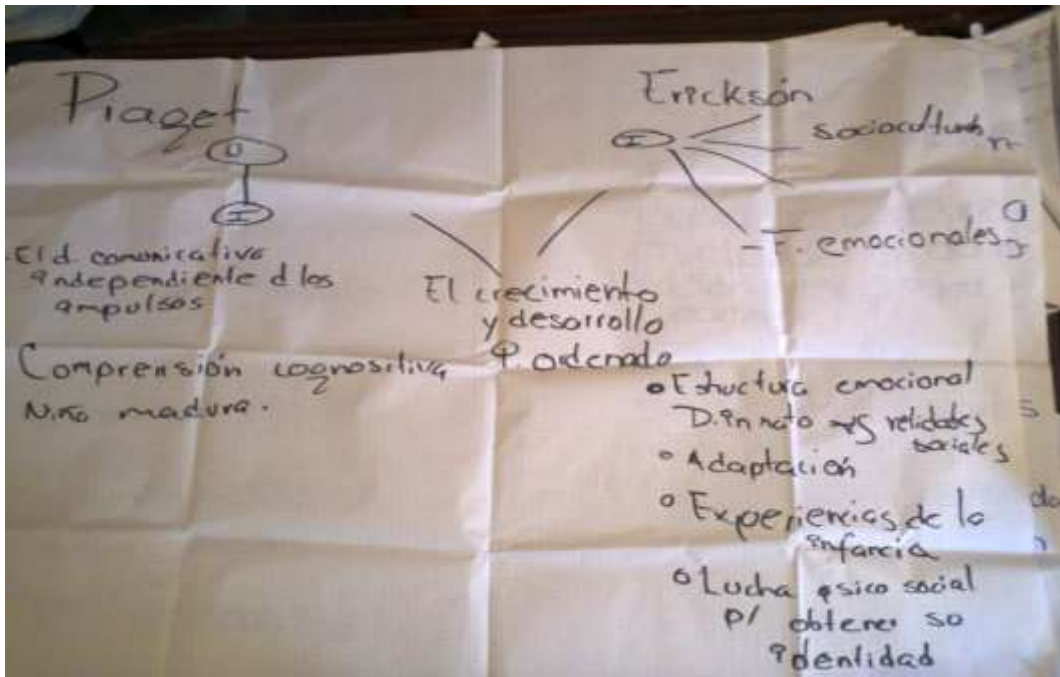 Piaget
I
.El d. comunicativo
independiente d los
impulsos
Comprensión cognositiva
Niño madura.
El crecimiento
y desarrollo
P. ordenado
Erickson
I
sociocultural
emocionales
• Estructura emocional
D. innato
sociales
• Adaptación
• Experiencias de la
infancia
• Lucha psico social
p/ obtener so
identidad